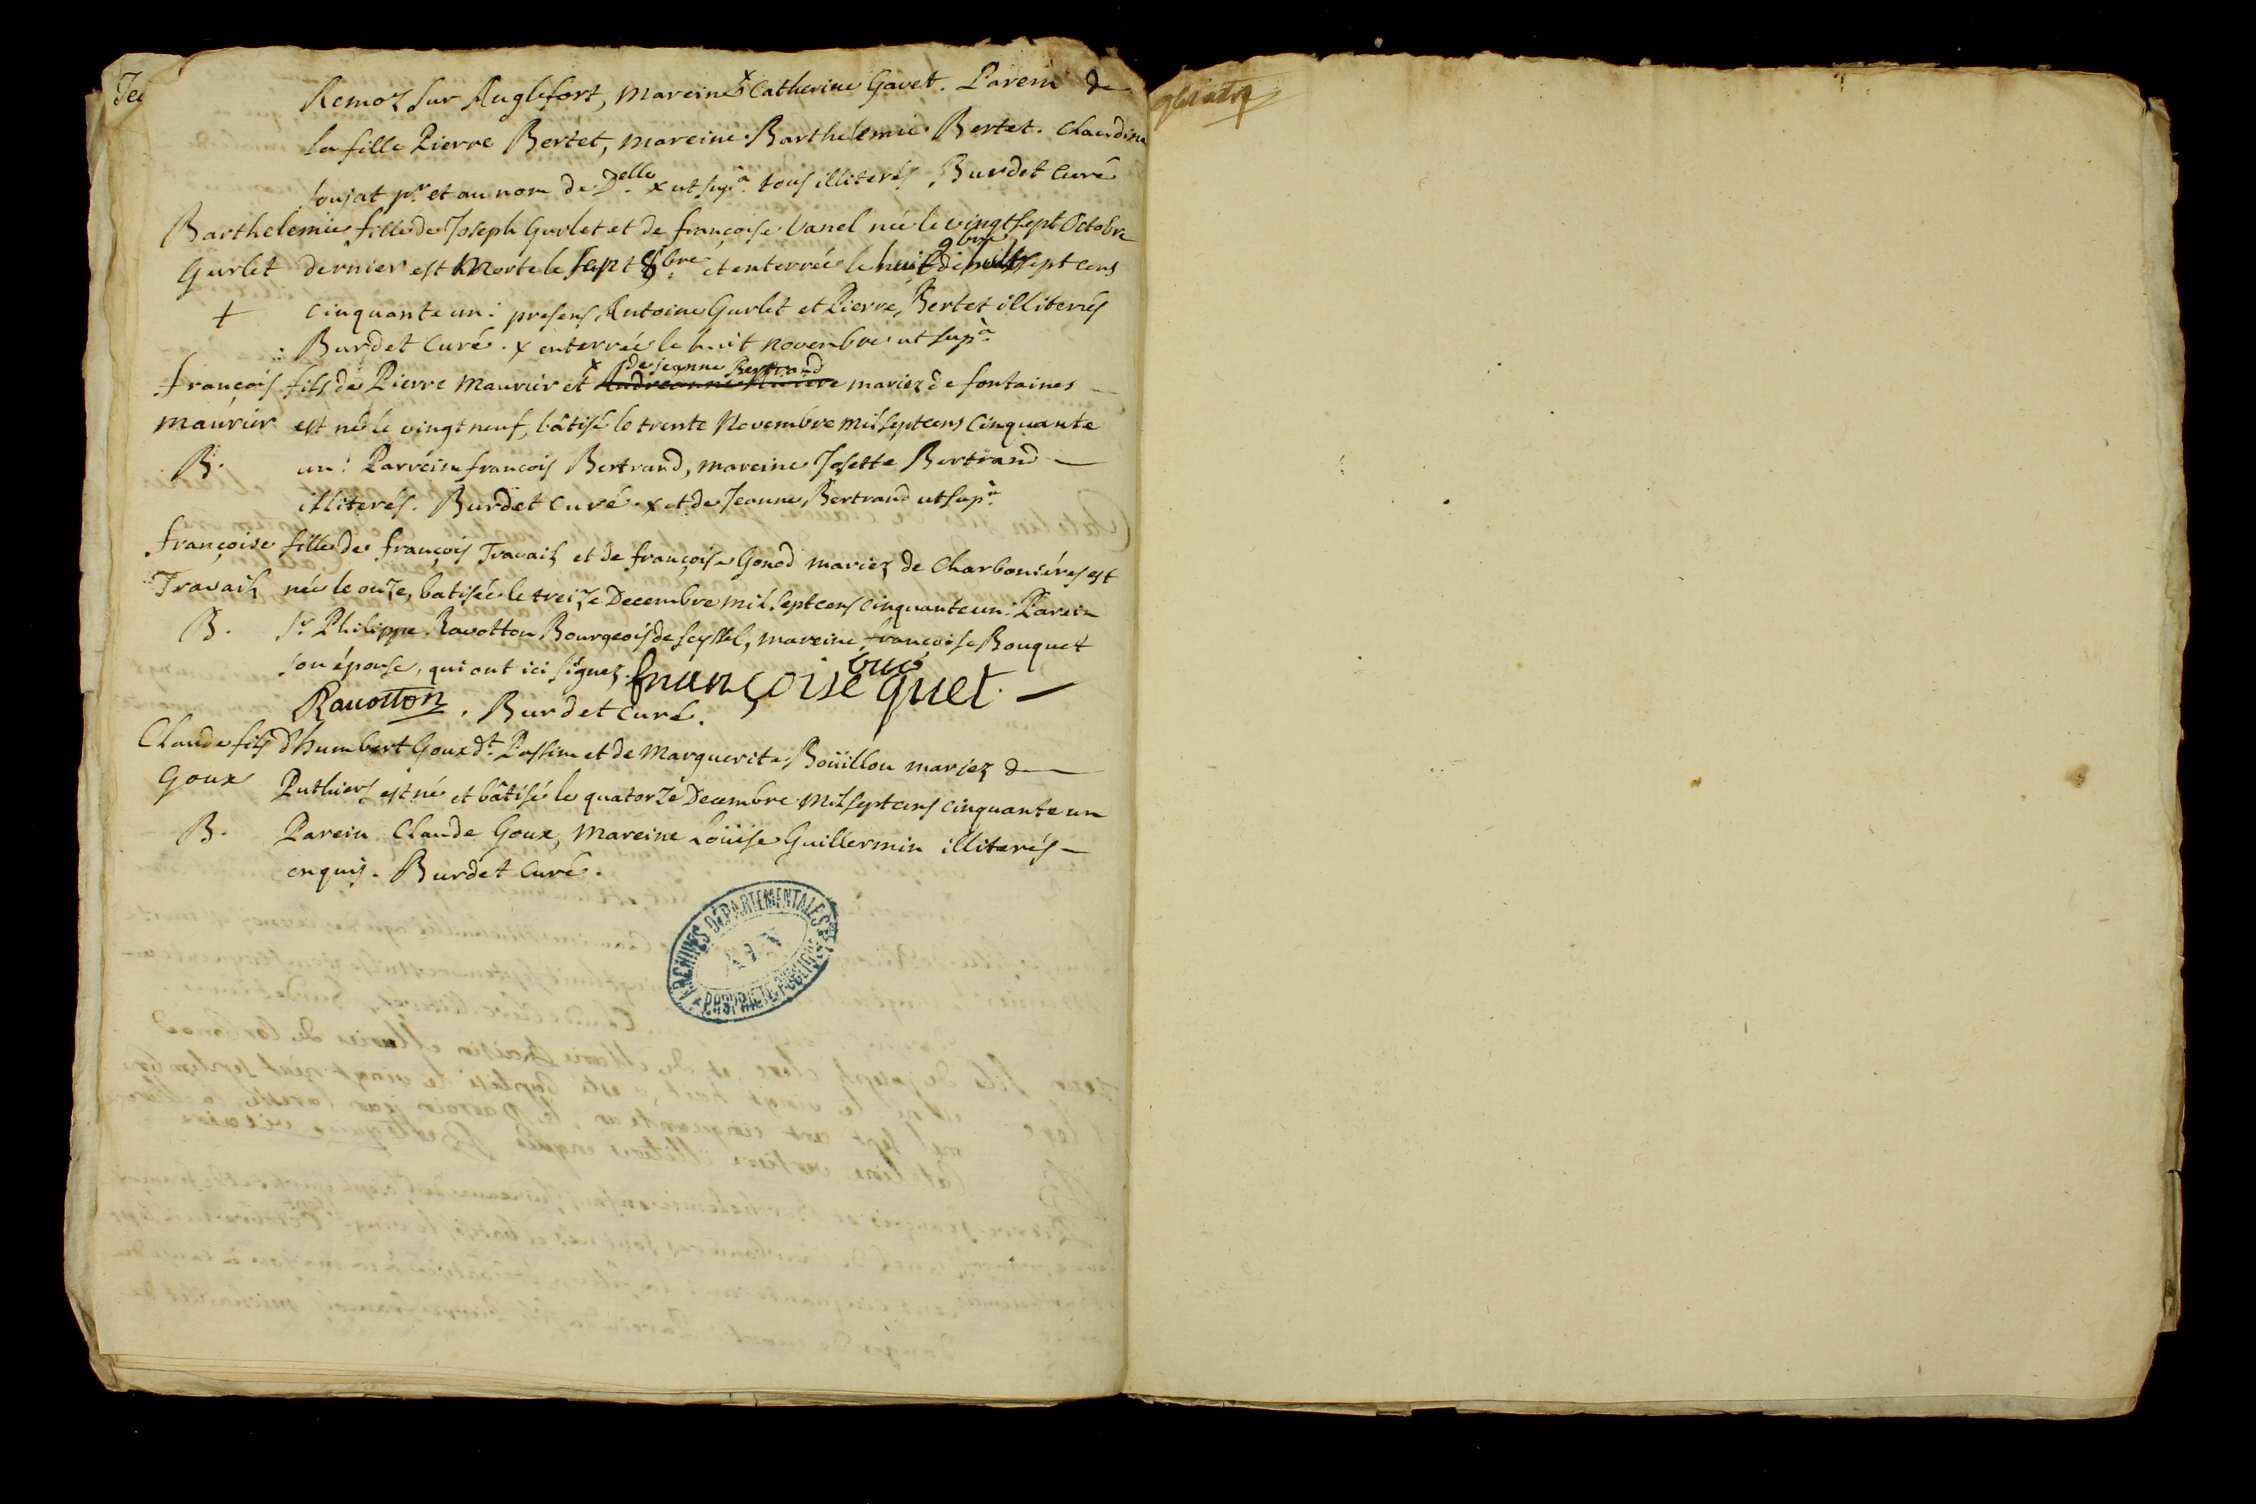 Remoz sur Anglefort, mareine x Catherine Gavet. Parein de
la fille Pierre Bertet, mareine Barthelemie Bertet. Claudine
soujat pr. et au nom de Delle x ut supa. tous illiterés. Burdet Curé
Barthelemie fille de Joseph Gurlet et de françoise Vanel née le vingt sept Octobre
9bre
Gurlet dernier est Morte le sept 8bre et enterrée le huit sept cens
+ cinquante un: presens Antoine Gurlet et Pierre Bertet illiterés
Burdet Curé. x enterrée le huit novembre ut supa
x de jeanne Bertrand
françois fils de Pierre Maurier et mariez de fontaines
maurier est né le vingt neuf, bâtisé le trente Novembre mil sept cens Cinquante
B. un: Parrein françois Bertrand, mareine Josette Bertrand
illiterés. Burdet Curé. x et de Jeanne Bertrand ut supa
françoise fille de françois Travail et de françoise Gonod mariez de Charboniéres est
Travail née le onze, batisée le treize Decembre mil sept cens cinquante un: Parein
B. Sr Philippe Ravotton Bourgeois de Seyssel, mareine françoise Bouquet
son épouse, qui ont ici signez. françoise bouquet.
Ravotton. Burdet Curé.
Claude fils d'humbert Goux dt. Passin et de Marguerite Boüillon mariez de
Goux Puthiers est né et bâtisé le quatorze Decembre Mil sept cens cinquante un
B. Parein Claude Goux, Mareine Loüise Guillermin illiterés
enquis. Burdet Curé.
ARCHIVES DÉPARTEMENTALES
AIN
PROPRIETÉ PUBLIQUE